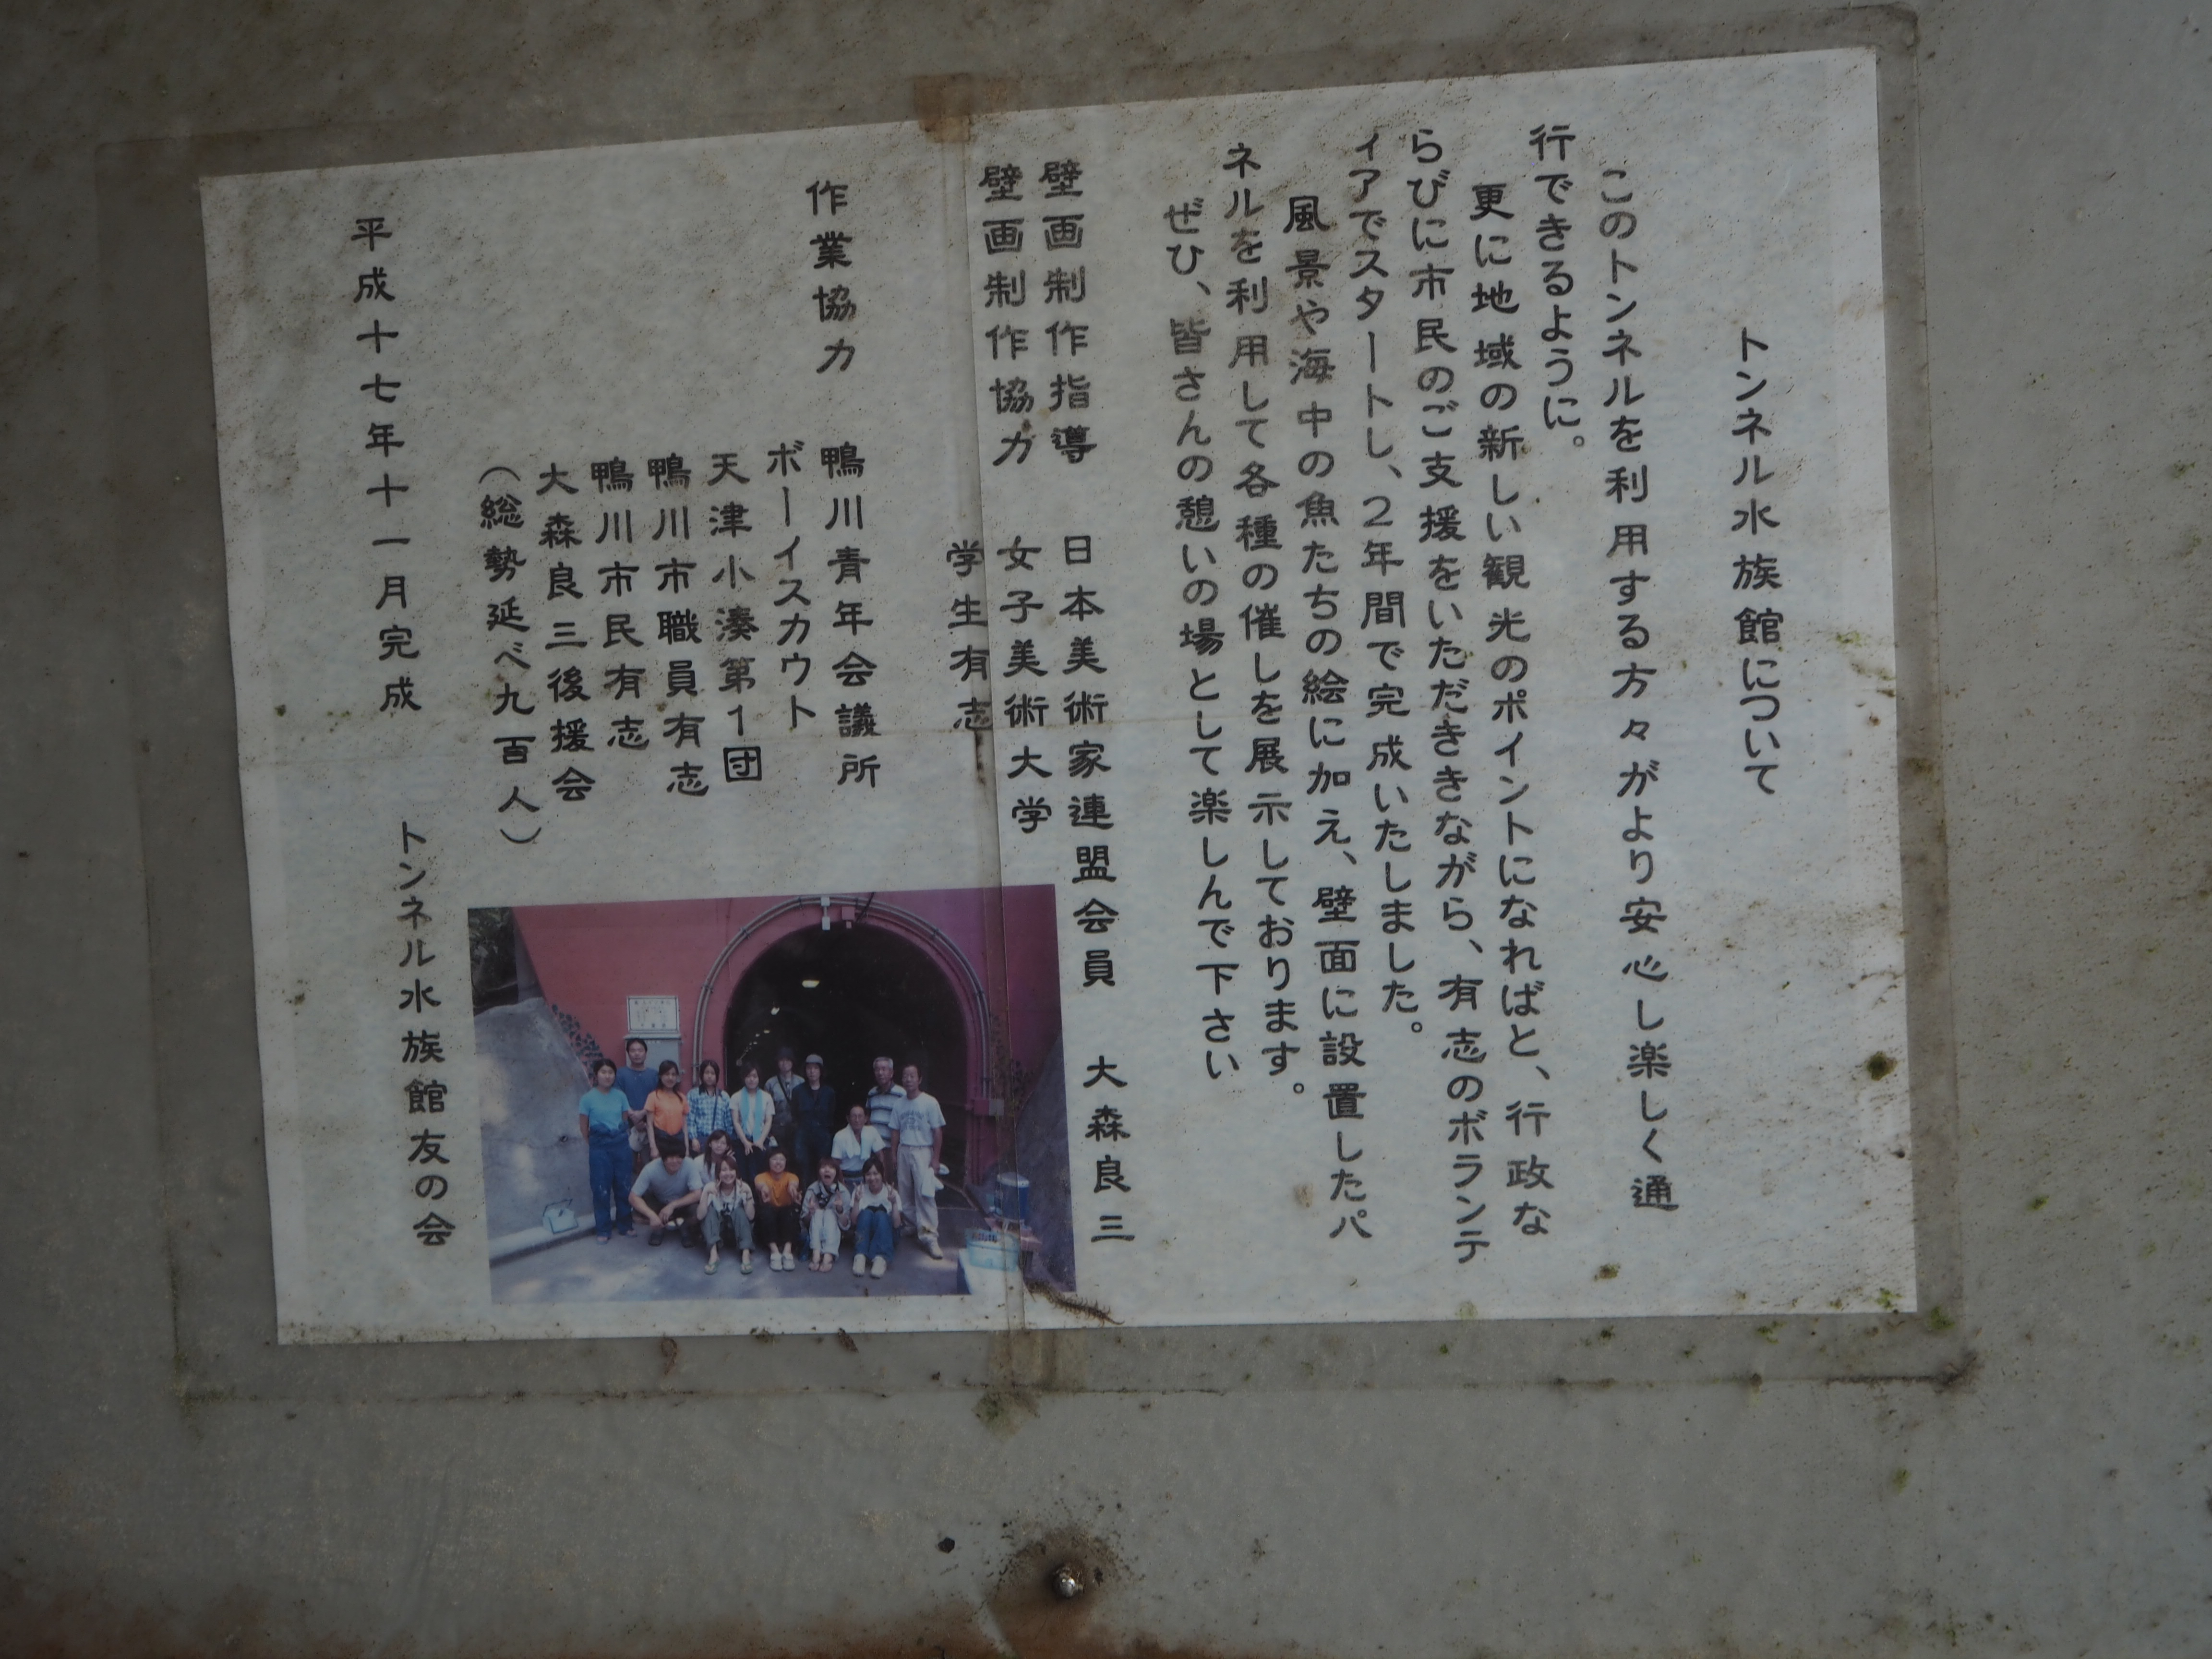 トンネル水族館について
このトンネルを利用する方々がより安心し楽しく通
行できるように。
更に地域の新しい観光のポイントになればと、行政な
らびに市民のご支援をいただききながら、有志のボランテ
ィアでスタートし、2年間で完成いたしました。
風景や海中の魚たちの絵に加え、壁面に設置したパ
ネルを利用して各種の催しを展示しております。
ぜひ、皆さんの憩いの場として楽しんで下さい
壁画制作指導 日本美術家連盟会員 大森良三
壁画制作協力 女子美術大学
学生有志
作業協力 鴨川青年会議所
ボーイスカウト
天津小湊第1団
鴨川市職員有志
鴨川市民有志
大森良三後援会
（総勢延べ九百人）
平成十七年十一月完成 トンネル水族館友の会